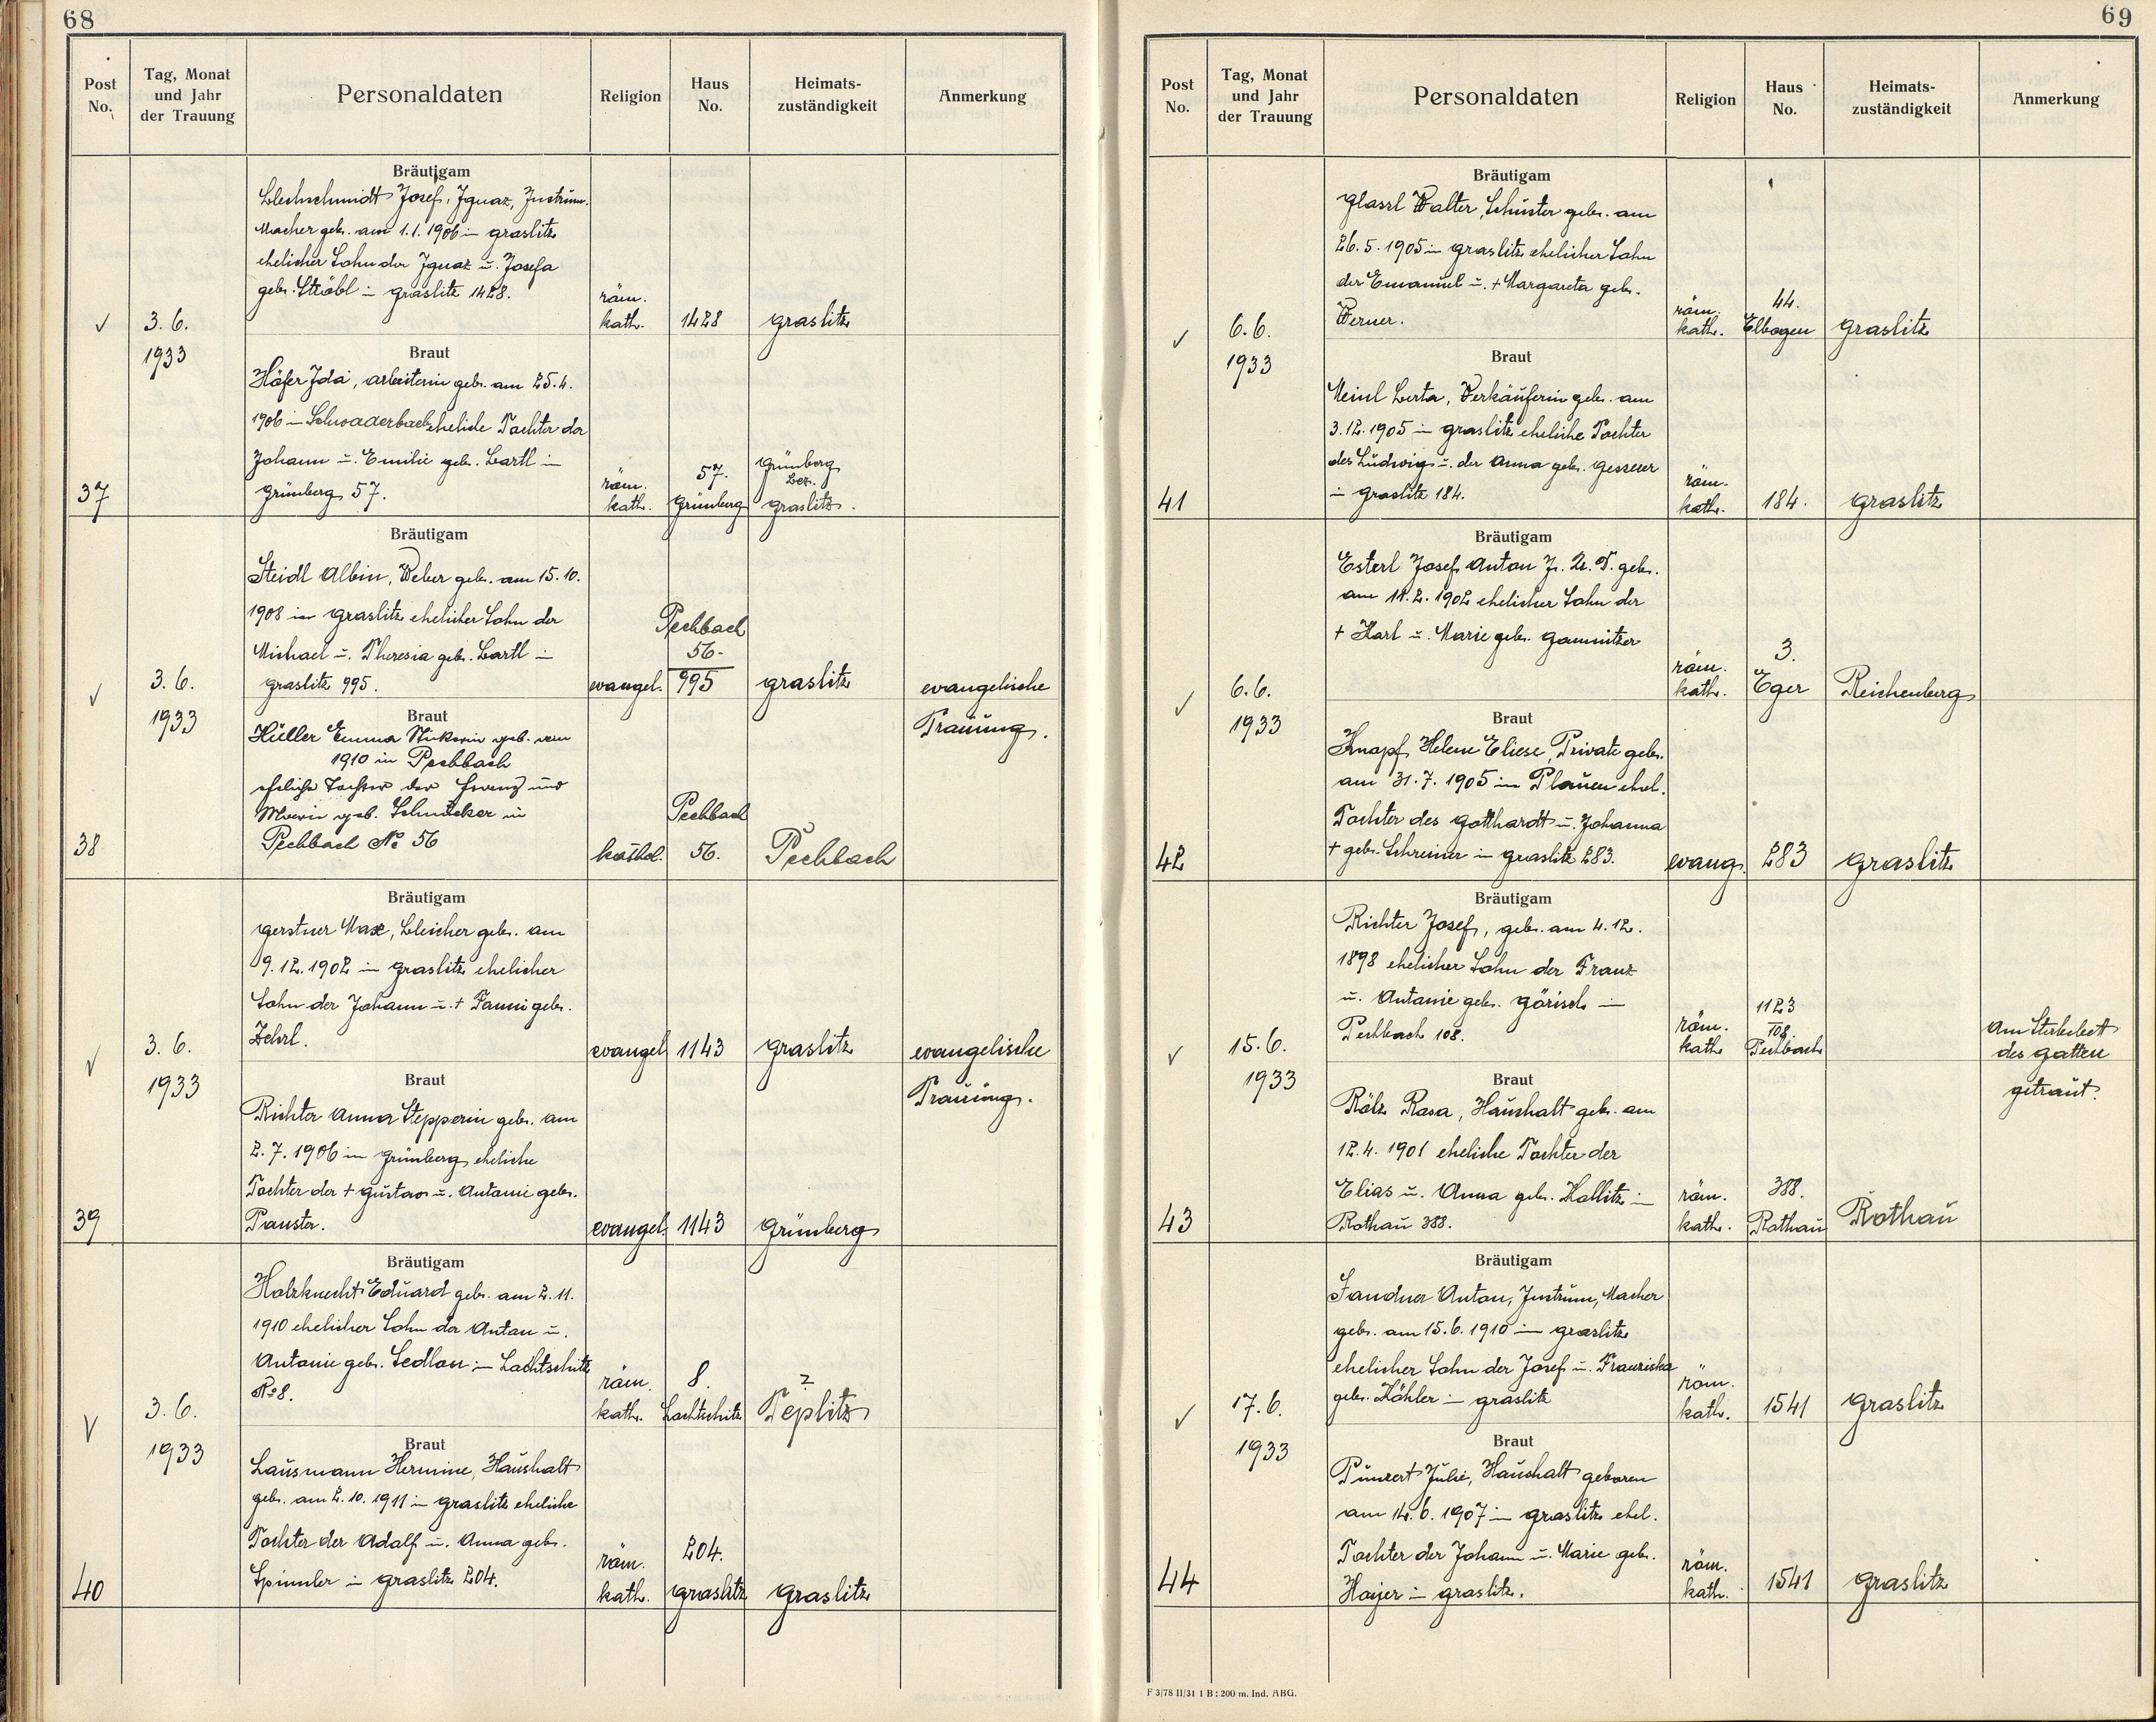 68
Post No.
Tag, Monat und Jahr der Trauung
Personaldaten
Religion
Haus No.
Heimats-zuständigkeit
Anmerkung
Bräutigam
Blechschmidt Josef, Ignaz, Instrum.
Macher geb. am 1.1.1906 in Graslitz
ehelicher Sohn der Ignaz u. Josefa
geb. Ströbl in Graslitz 1428.
röm.
kath.
1428
Graslitz
3.6.
1933
Braut
Höfer Ida, Arbeiterin geb. am 25.4.
1906 in Schwaderbach eheliche Tochter der
Johann u. Emilie geb. Bartl in
Grünberg 57.
röm.
kath.
57.
Grünberg
Grünberg
Bez.
Graslitz.
37
Bräutigam
Steidl Albin, Weber geb. am 15.10.
1908 in Graslitz ehelicher Sohn der
Michael u. Theresia geb. Bartl in
Graslitz 995.
evangel.
Pechbach
56.
995
Graslitz
evangelische
Trauung.
3.6.
1933
Braut
Hüller Emma Stickerin geb. vom
1910 in Pechbach
eheliche Tochter der Franz und
Marie geb. Schmucker in
Pechbach No 56
kathol.
Pechbach
56.
Pechbach
38
Bräutigam
Gerstner Max, Bleicher geb. am
9.12.1902 in Graslitz ehelicher
Sohn der Johann u. + Fanni geb.
Zehrl.
evangel.
1143
Graslitz
evangelische
Trauung.
3.6.
1933
Braut
Richter Anna Stepperin geb. am
2.7.1906 in Grünberg eheliche
Tochter der + Gustav u. Antonie geb.
Panster.
evangel.
1143
Grünberg
39
Bräutigam
Holzknecht Eduard geb. am 2.11.
1910 ehelicher Sohn der Anton u.
Antonie geb. Sedlon in Lochtschitz
No 8.
röm.
kath.
8.
Lochtschitz
?
Teplitz
3.6.
1933
Braut
Lausmann Hermine, Haushalt
geb. am 2.10.1911 in Graslitz eheliche
Tochter der Adolf u. Anna geb.
Spinnler in Graslitz 204.
röm.
kath.
204.
Graslitz
Graslitz
40
69
Post No.
Tag, Monat und Jahr der Trauung
Personaldaten
Religion
Haus No.
Heimats-zuständigkeit
Anmerkung
Bräutigam
Glassl Walter, Schuster geb. am
26.5.1905 in Graslitz ehelicher Sohn
der Emanuel u. + Margareta geb.
Werner.
röm.
kath.
44.
Elbogen
Graslitz
6.6.
1933
Braut
Meinl Berta, Verkäuferin geb. am
3.12.1905 in Graslitz eheliche Tochter
des Ludwig u. der Anna geb.
in Graslitz 184.
röm.
kath.
184.
Graslitz
41
Bräutigam
Esterl Josef Anton geb.
am 18.2.1902 ehelicher Sohn der
+ Karl u. Marie geb. Gamnitzer
röm.
kath.
3.
Eger
Reichenberg
6.6.
1933
Braut
Knapf Helene Eliese, Private geb.
am 31.7.1905 in Plauen ehel.
Tochter des Gotthardt u. Johanna
+ geb. Schreiner in Graslitz 283.
evang.
283
Graslitz
42
Bräutigam
Richter Josef, geb. am 4.12.
1898 ehelicher Sohn der Franz
u. Antonie geb. Görisch in
Pechbach 108.
röm.
kath
1123
108.
Pechbach
Am Sterbebett
des Gatten
getraut.
15.6.
1933
Braut
Rölz Rosa, Haushalt geb. am
12.4.1901 eheliche Tochter der
Elias u. Anna geb. Kollitz in
Rothau 388.
röm.
kath.
388.
Rothau
Rothau
43
Bräutigam
Sandner Anton, Instrum, Macher
geb. am 15.6.1910 in Graslitz
ehelicher Sohn der Josef u. Franziska
geb. Köhler in Graslitz
röm.
kath.
1541
Graslitz
17.6.
1933
Braut
Punzert Julie, Haushalt geboren
am 14.6.1907 in Graslitz ehel.
Tochter der Johann u. Marie geb.
Hoyer in Graslitz.
röm.
kath.
1541
Graslitz
44
F 3/78 II/31 1 B : 200 m. Ind. ABG.